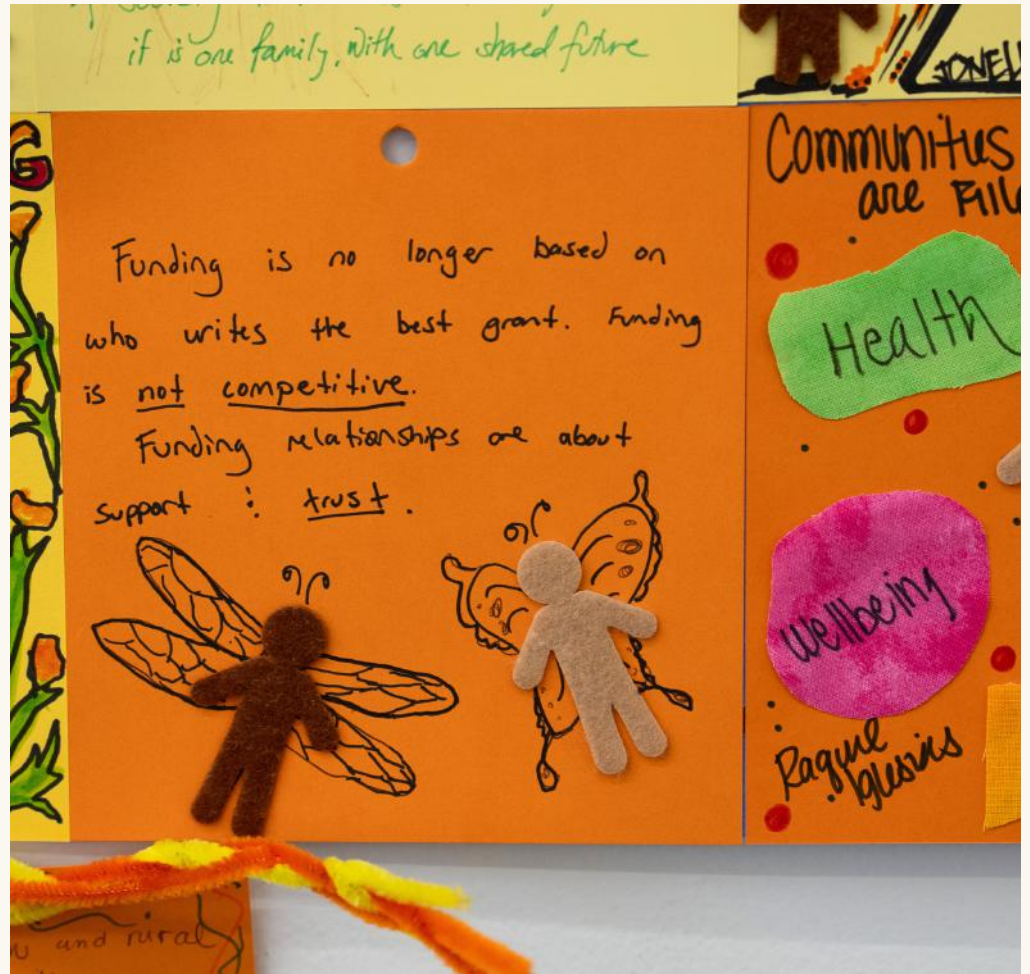 it is one family, with one shared future
JONELL
G
Funding is no longer based on
who writes the best grant. Funding
is not competitive.
Funding relationships are about
support : trust.
Communitus
are
Health
wellbeing
Raquel
Iglesias
and rural